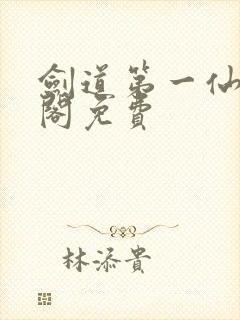 劍道第一仙
閣免費
林添貴